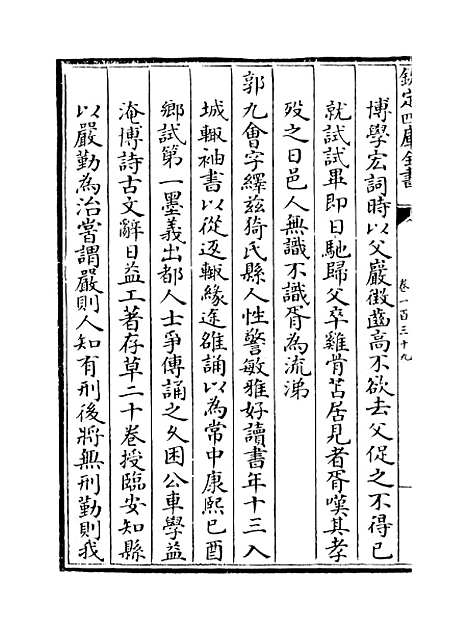 欽定四庫全書
卷一百三十九
博學宏詞時以父巖徵齒高不欲去父促之不得已
就試試畢即日馳歸父卒雞骨苫居見者胥嘆其孝
歿之日邑人無識不識胥為流涕
郭九會字繹兹猗氏縣人性警敏雅好讀書年十三入
城輙袖書以從返輙緣途雒誦以為常中康熙已酉
鄉試第一墨義出都人士爭傳誦之久困公車學益
淹博詩古文辭日益工著存草二十卷授臨安知縣
以嚴勤為治嘗謂嚴則人知有刑後將無刑勤則我